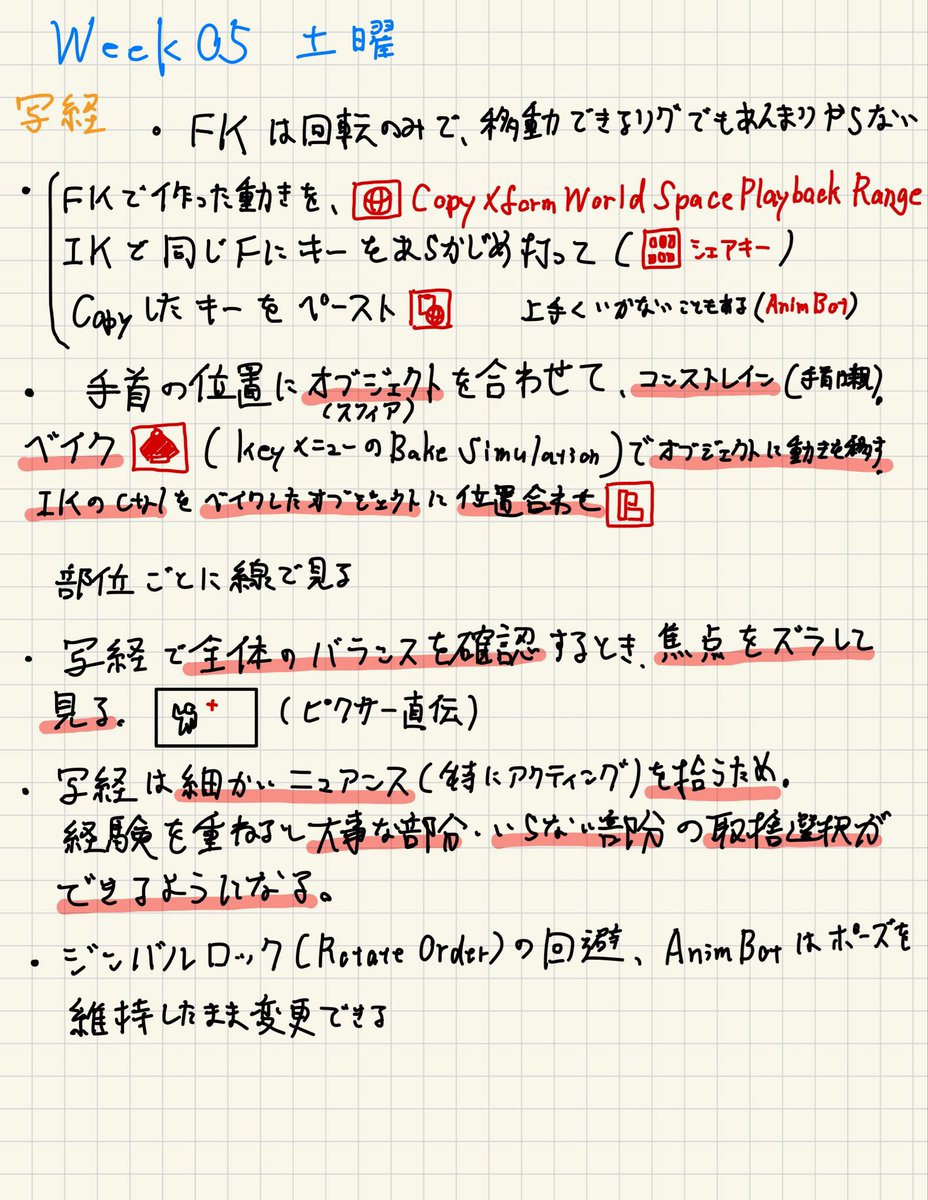 Week 05 土曜
写経
・FKは回転のみで、移動できるリグでもあんまりやらない
・FKで作った動きを、Copy Xform World Space Playback Range
IKと同じFにキーをあらかじめ打って(シェアキー)
Copyしたキーをペースト 上手くいかないこともある(AnimBot)
・手首の位置にオブジェクトを合わせて、コンストレイン(手首が親)。
(スフィア)
ベイク(keyメニューのBake Simulation)でオブジェクトに動きを移す。
IKのCtrlをベイクしたオブジェクトに位置合わせ
部位ごとに線で見る
・写経で全体のバランスを確認するとき、焦点をズラして
見る。(ピクサー直伝)
・写経は細かいニュアンス(特にアクティング)を拾うため。
経験を重ねると大事な部分・いらない部分の取捨選択が
できるようになる。
・ジンバルロック(Rotate Order)の回避、AnimBotはポーズを
維持したまま変更できる